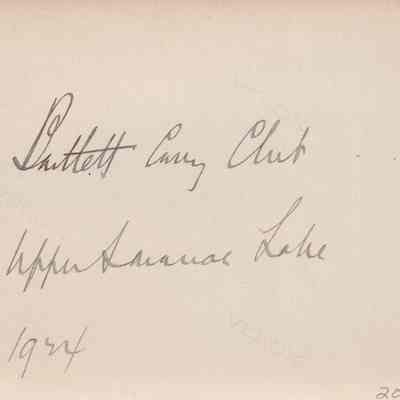 Bartlett Carry Club
Upper Saranac Lake
1924
20